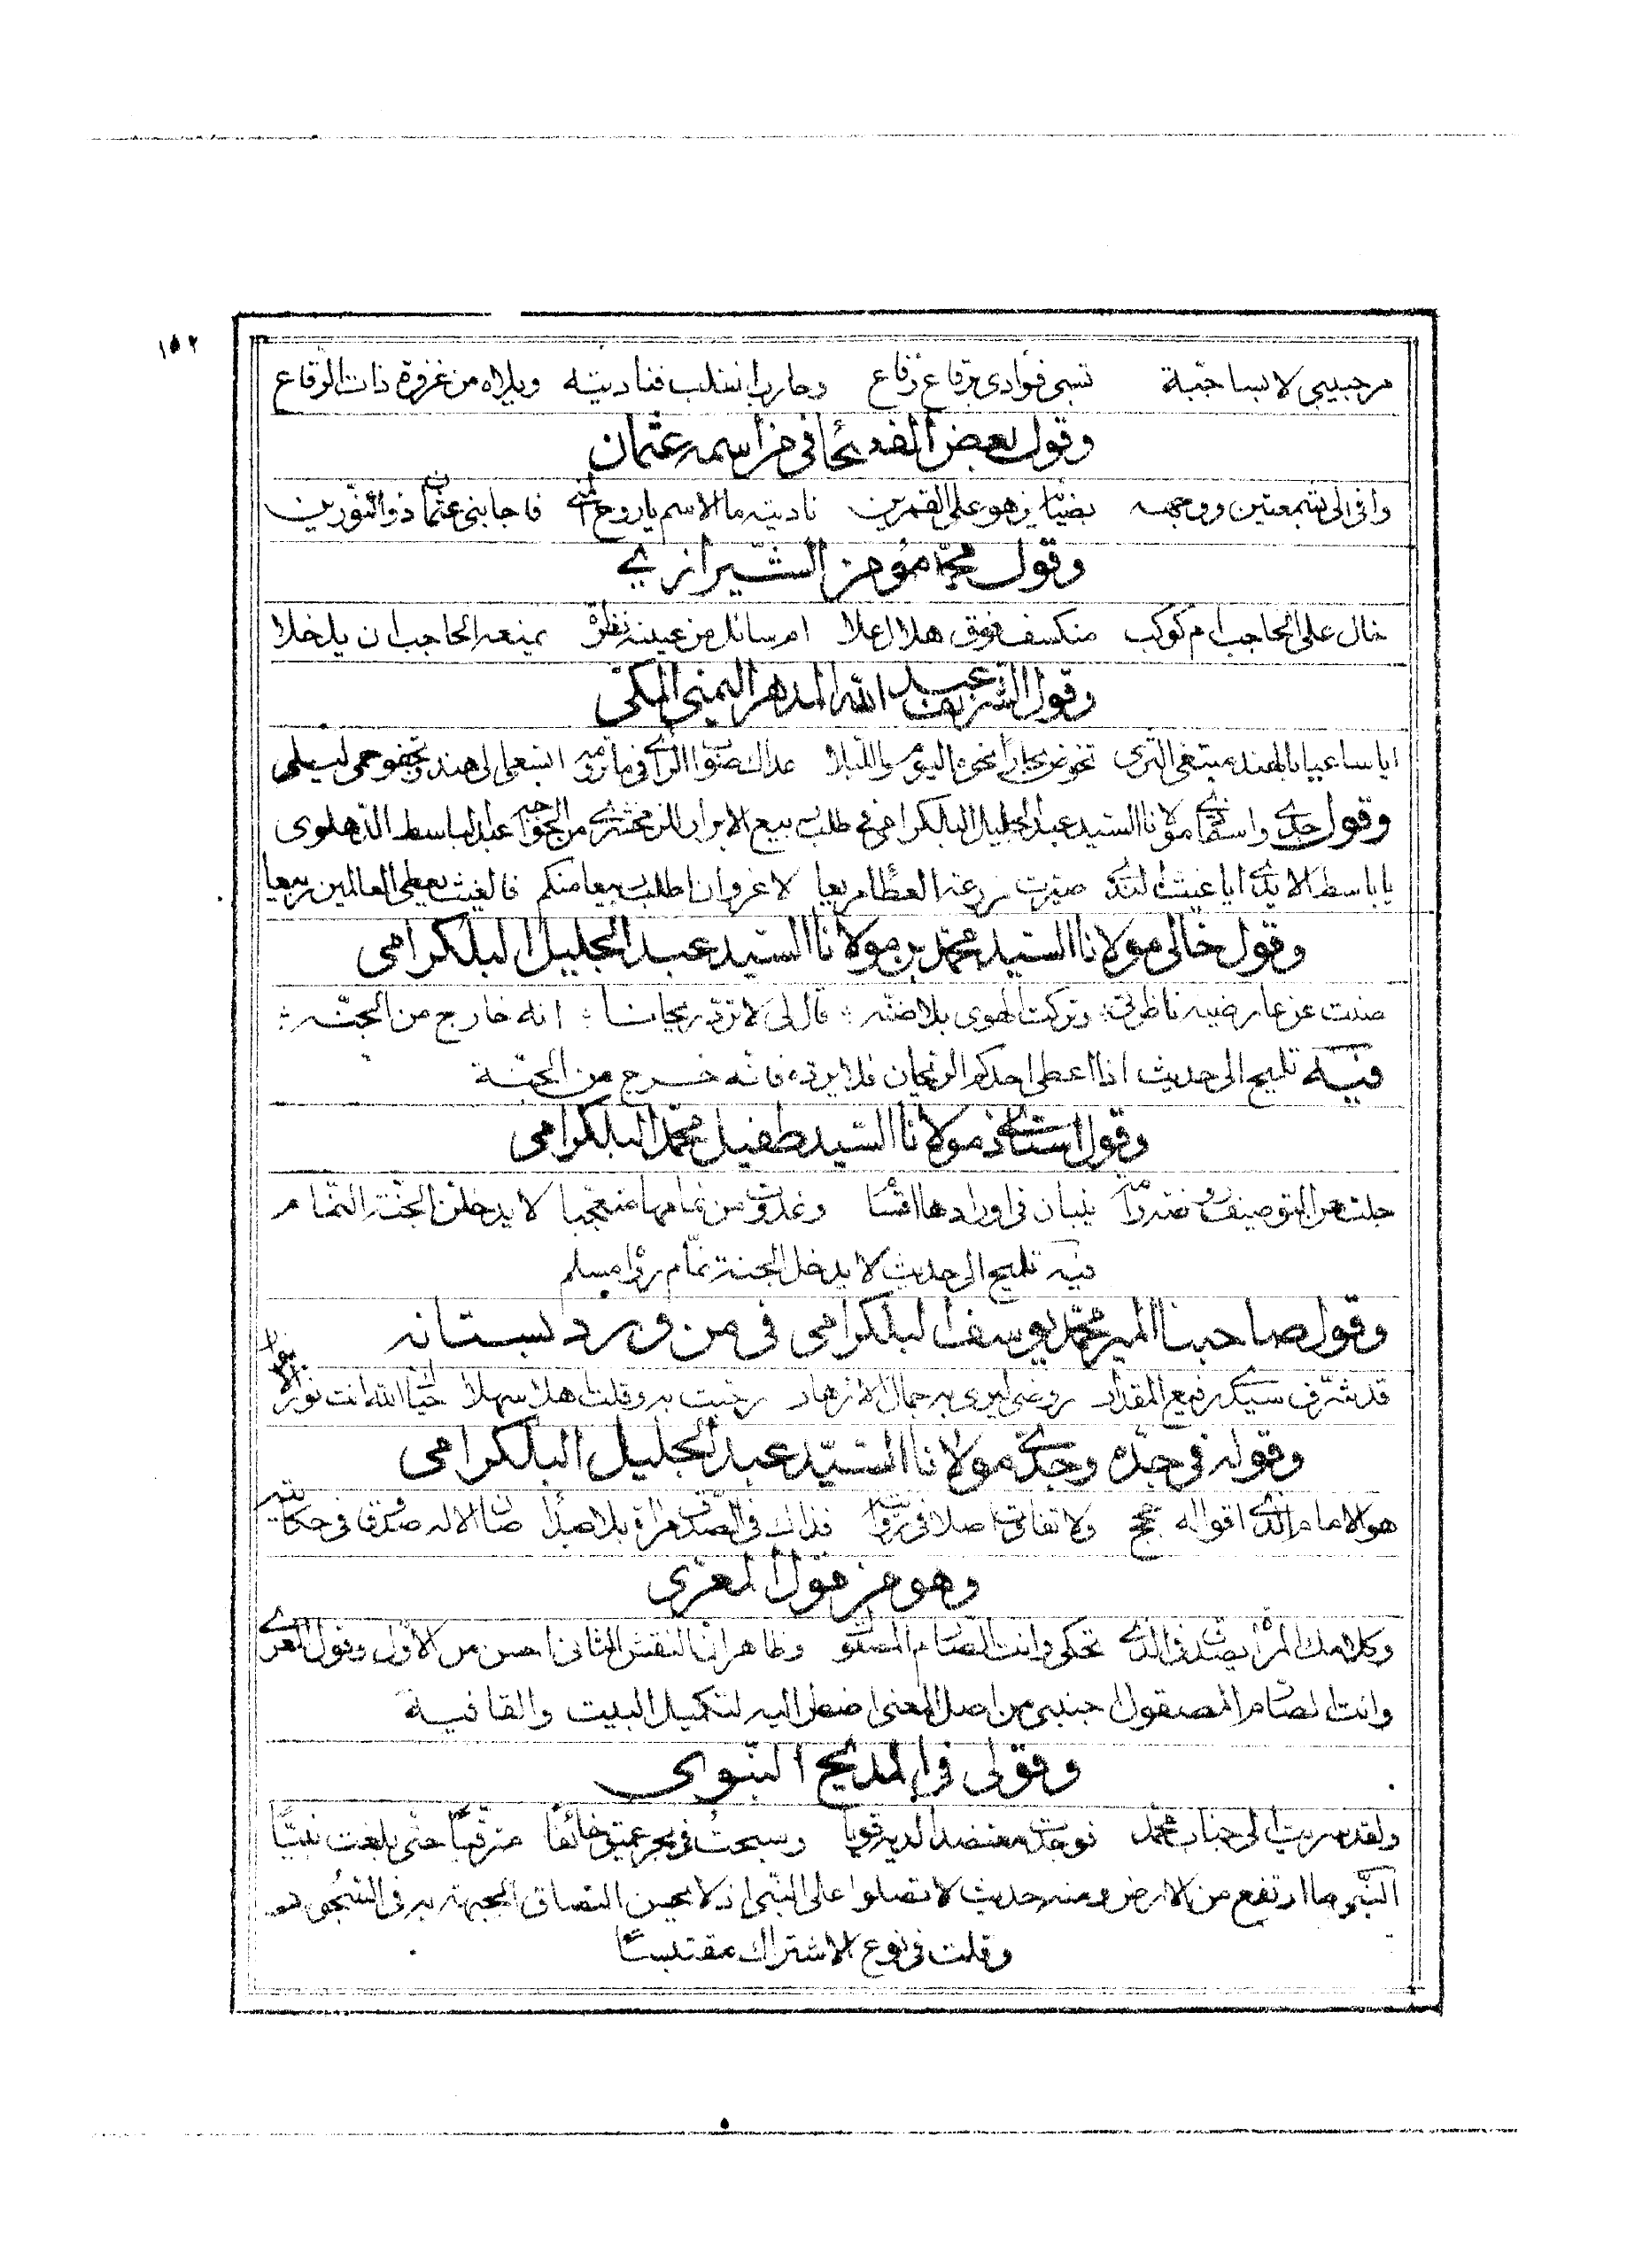 ١٥٢
مر حبيبي لابسا جبّة تسبى فؤادي برقاع رقاع وحار باستلب فناديته ويلاه من غزوة ذات الرقاع
وقول بعض الفصحاء في من اسمه عثمان
وافى الي بشمعتين ووجهه بضيائه يزهو على القمرين ناديته ما الاسم يا روح فاجابني عثمان ذو النورين
وقول محمد مؤمن الشيرازي
خال على الحاجب ام كوكب منكسف فوق هلال علا ام سائل من عينه نظرة يمنعه الحاجب ان يدخلا
وقول الشريف عبد الله المدهر اليمني المكي
ايا ساعيا بالهند مبتغي الثرى تخوض بحارا نحوه اليوم والليلا عداك صواب الراي فيما ترومه اتسعى الى هند وتجفو حمى ليلى
وقول جدي واستاذي مولانا السيد عبد الجليل البلكرامي في طلب ربيع الابرار للزمخشري من الخواجه عبد الباسط الدهلوي
يا باسط الايدي ايا غيث الندى صيرت مزرعة العظام ربيعا لا غرو ان اطلب ربيعا منكم فالغيث يعطي العالمين ربيعا
وقول خالي مولانا السيد محمد بن مولانا السيد عبد الجليل البلكرامي
صنت عن عارضيه ناظرتي وتركت الهوى بلا ضنّه قال لي لا تردّ ريحانا انه خارج من الجنّه
فيه تلميح الى حديث اذا اعطى احدكم الريحان فلا يرده فانه خرج من الجنّة
وقول استاذي مولانا السيد طفيل محمد البلكرامي
جلت عن التوصيف نضرة يثبان في اورادها اقسام وغدوت من نمامها متعجبا لا يدخلن الجنة النمّام
فيه تلميح الى حديث لا يدخل الجنة نمّام رواه مسلم
وقول صاحبنا المير محمد يوسف البلكرامي في من ورد بستانه
قد شرّف سيد رفيع المقدار روضي ليرى به جمال الازهار رحبت به وقلت اهلا سهلا حيّاك الله انت نور الابصار
وقوله في جده وجدي مولانا السيّد عبد الجليل البلكرامي
هو الامام الذي اقواله حجج ولا تفاوت اصلا في روايته فذاك في الصدق مرآة بلا صدأ صان الاله صدقا في حكايته
وهو من قول المعري
وكلامك المرآة يصدق في الذي تحكي وانت الصارم المصقول وظاهر ان النقش الثاني احسن من الاول وقول المعري
وانت الصارم المصقول اجنبي من اصل المعنى اضطر اليه لتكميل البيت والقافية
وقولي في المديح النبوي
ولقد سريت الى جناب محمد فوجدت معتضد الديه قويا وسبحت في بحر عميق خائفا مترقبا حتى بلغت نبيّا
النّبي ما ارتفع من الارض ومنه حديث لا تصلوا على النّبي اذ لا يحسن التصاق الجبهة به في السّجود
وقلت في نوع الاشتراك مقتبسًا